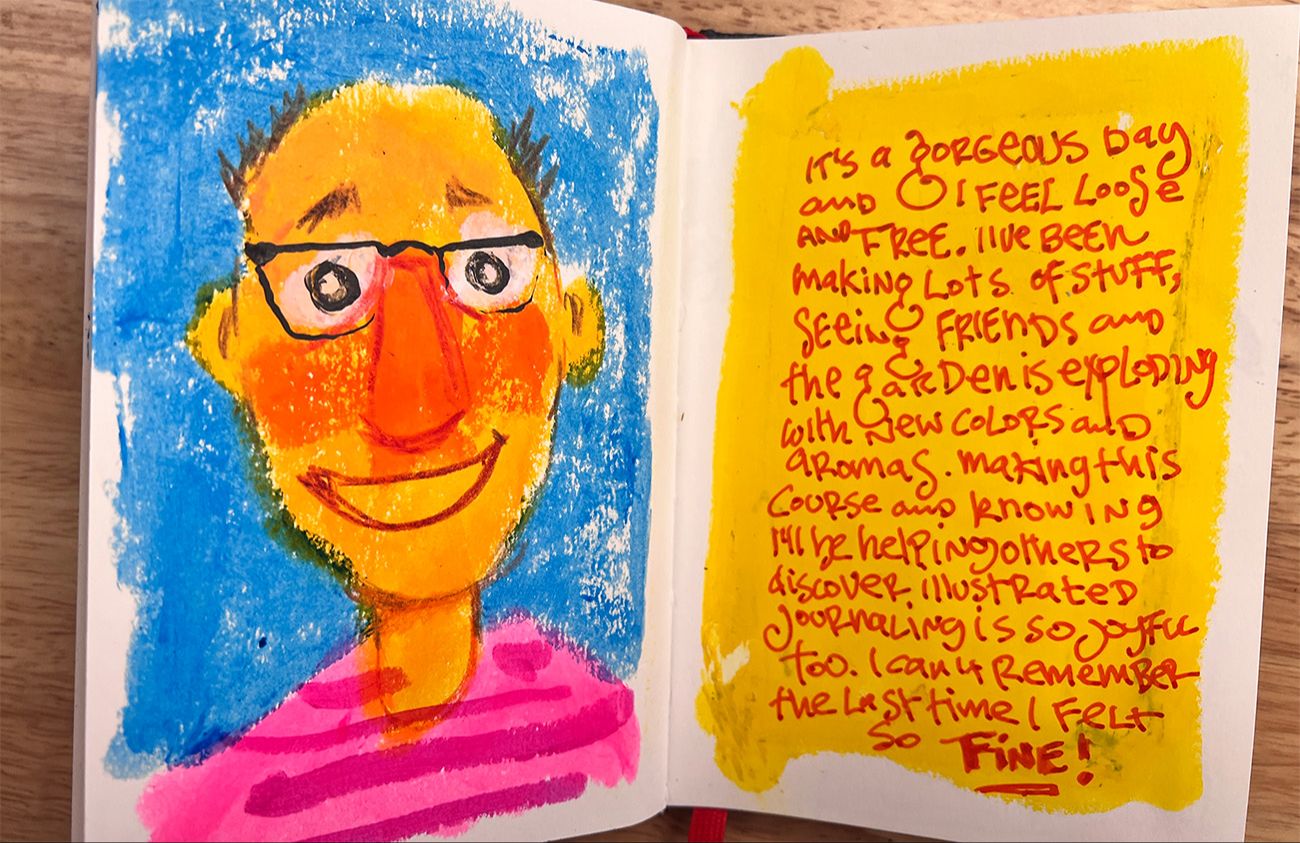 IT'S a gorgeous Day
and I FEEL Loose
AND FREE. I'VE BEEN
making Lots of stuff,
seeing FRIENDS and
the garden is exploding
with New colors and
aromas. making this
course and knowing
I'll be helping others to
discover illustrated
journaling is so joyful
too. I can't Remember
the last time I Felt
so FINE!